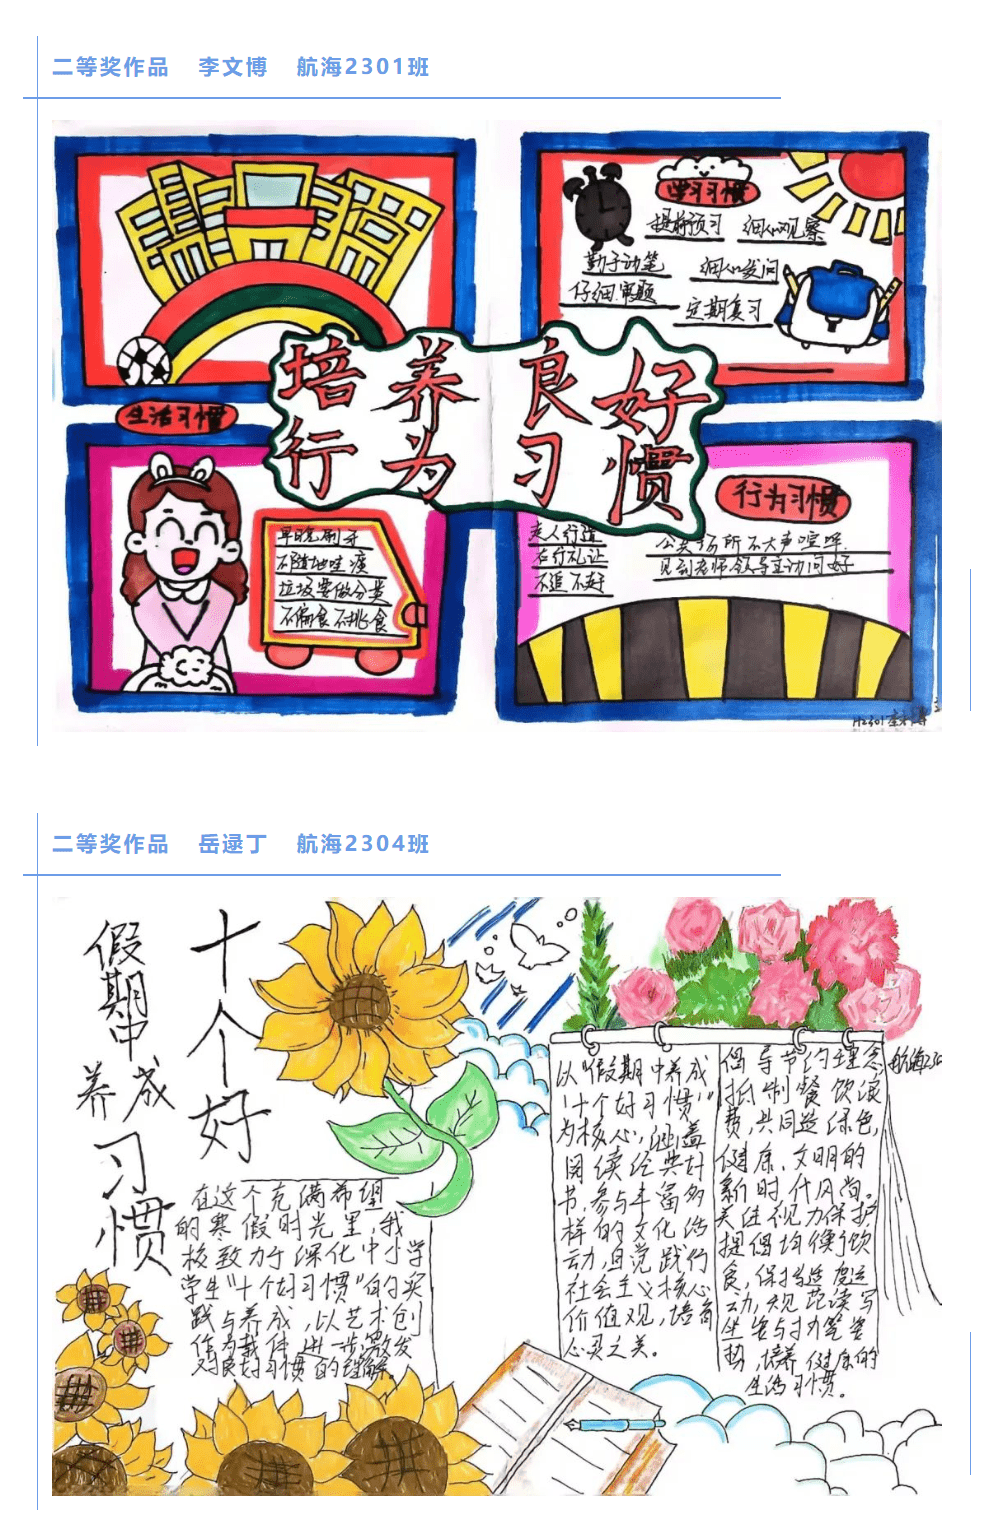 二等奖作品 李文博 航海2301班
培养良好
行为习惯
学习习惯
提前预习 细心观察
勤于动笔 细心发问
仔细审题 定期复习
生活习惯
早晚刷牙
不随地吐痰
垃圾要做分类
不偏食不挑食
行为习惯
公共场所不大声喧哗
见到老师领导主动问好
文人行道
右行礼让
不追不赶
H2301 李文博
二等奖作品 岳逯丁 航海2304班
十个好
假期中
养成
习惯
在这个充满希望
的寒假时光里,我
校致力于深化中小学
学生“十个好习惯”的实
践与养成,以艺术创
作为载体进一步激发
对良好习惯的理解。
以“假期中养成
“十个好习惯”
为核心,涵盖
阅读经典好
书,参与丰富多
样的文化活
动,自觉践行
社会主义核心
价值观,培育
心灵之美。
倡导节约理念
抵制餐饮浪
费,共同造绿色,
健康、文明的
新时代风尚。
关注视力保护
提倡均衡饮
食,保持适度运
动,规范读写
坐姿与执笔姿
势,培养健康的
生活习惯。
航海230